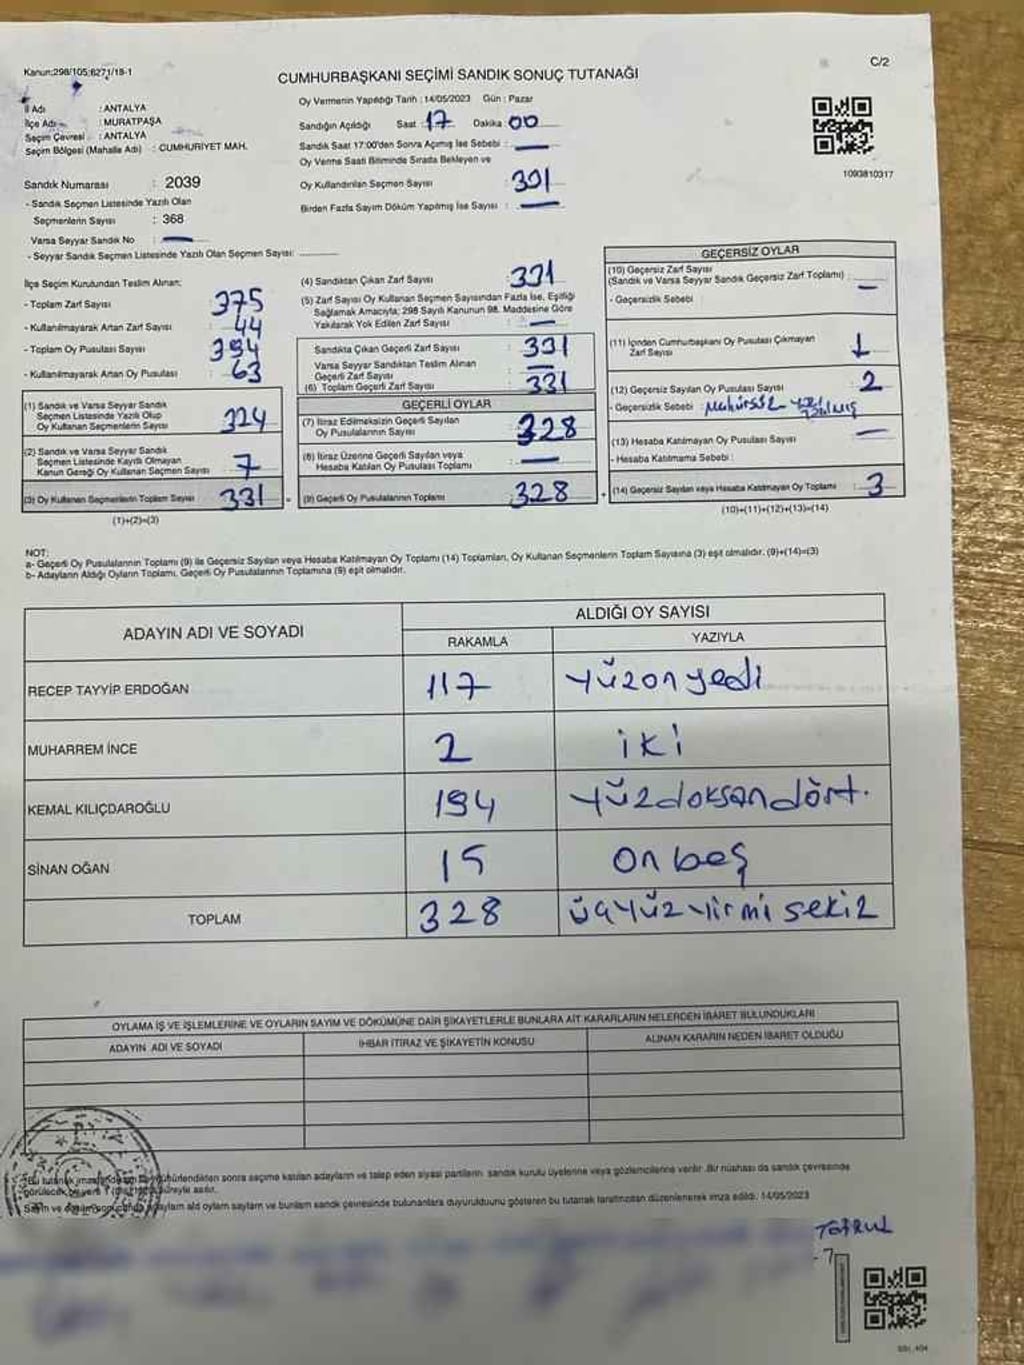 Kanun:298/105;6271/18-1
C/2
CUMHURBAŞKANI SEÇİMİ SANDIK SONUÇ TUTANAĞI
İl Adı : ANTALYA
İlçe Adı : MURATPAŞA
Seçim Çevresi : ANTALYA
Seçim Bölgesi (Mahalle Adı) : CUMHURİYET MAH.
Sandık Numarası : 2039
- Sandık Seçmen Listesinde Yazılı Olan
Seçmenlerin Sayısı : 368
Varsa Seyyar Sandık No : —
- Seyyar Sandık Seçmen Listesinde Yazılı Olan Seçmen Sayısı:
Oy Vermenin Yapıldığı Tarih : 14/05/2023 Gün : Pazar
Sandığın Açıldığı Saat 17 Dakika 00
Sandık Saat 17:00'den Sonra Açılmış İse Sebebi : —
Oy Verme Saati Bitiminde Sırada Bekleyen ve
Oy Kullandırılan Seçmen Sayısı
Birden Fazla Sayım Döküm Yapılmış İse Sayısı : —
1093810317
İlçe Seçim Kurulundan Teslim Alınan;
- Toplam Zarf Sayısı : 375
- Kullanılmayarak Artan Zarf Sayısı : 44
- Toplam Oy Pusulası Sayısı : 394
- Kullanılmayarak Artan Oy Pusulası : 63
(1) Sandık ve Varsa Seyyar Sandık
Seçmen Listesinde Yazılı Olup
Oy Kullanan Seçmenlerin Sayısı : 324
(2) Sandık ve Varsa Seyyar Sandık
Seçmen Listesinde Kayıtlı Olmayan
Kanun Gereği Oy Kullanan Seçmen Sayısı : 7
(3) Oy Kullanan Seçmenlerin Toplam Sayısı : 331
(1)+(2)=(3)
(4) Sandıktan Çıkan Zarf Sayısı : 331
(5) Zarf Sayısı Oy Kullanan Seçmen Sayısından Fazla İse, Eşitliği
Sağlamak Amacıyla; 298 Sayılı Kanunun 98. Maddesine Göre
Yakılarak Yok Edilen Zarf Sayısı : —
Sandıkta Çıkan Geçerli Zarf Sayısı : 331
Varsa Seyyar Sandıktan Teslim Alınan
Geçerli Zarf Sayısı : —
(6) Toplam Geçerli Zarf Sayısı : 331
GEÇERLİ OYLAR
(7) İtiraz Edilmeksizin Geçerli Sayılan
Oy Pusulalarının Sayısı : 328
(8) İtiraz Üzerine Geçerli Sayılan veya
Hesaba Katılan Oy Pusulası Toplamı : —
(9) Geçerli Oy Pusulalarının Toplamı : 328
GEÇERSİZ OYLAR
(10) Geçersiz Zarf Sayısı
(Sandık ve Varsa Seyyar Sandık Geçersiz Zarf Toplamı) : —
- Geçersizlik Sebebi :
(11) İçinden Cumhurbaşkanı Oy Pusulası Çıkmayan
Zarf Sayısı : 1
(12) Geçersiz Sayılan Oy Pusulası Sayısı : 2
- Geçersizlik Sebebi : Mühürsüz
(13) Hesaba Katılmayan Oy Pusulası Sayısı : —
- Hesaba Katılmama Sebebi :
(14) Geçersiz Sayılan veya Hesaba Katılmayan Oy Toplamı : 3
(10)+(11)+(12)+(13)=(14)
NOT:
a- Geçerli Oy Pusulalarının Toplamı (9) ile Geçersiz Sayılan veya Hesaba Katılmayan Oy Toplamı (14) Toplamları, Oy Kullanan Seçmenlerin Toplam Sayısına (3) eşit olmalıdır. (9)+(14)=(3)
b- Adayların Aldığı Oyların Toplamı, Geçerli Oy Pusulalarının Toplamına (9) eşit olmalıdır.
ADAYIN ADI VE SOYADI
ALDIĞI OY SAYISI
RAKAMLA YAZIYLA
RECEP TAYYİP ERDOĞAN 117 Yüzonyedi
MUHARREM İNCE 2 iki
KEMAL KILIÇDAROĞLU 194 Yüzdoksandört.
SİNAN OĞAN 15 Onbeş
TOPLAM 328 üçyüzyirmi sekiz
OYLAMA İŞ VE İŞLEMLERİNE VE OYLARIN SAYIM VE DÖKÜMÜNE DAİR ŞİKAYETLERLE BUNLARA AİT KARARLARIN NELERDEN İBARET BULUNDUKLARI
ADAYIN ADI VE SOYADI İHBAR İTİRAZ VE ŞİKAYETİN KONUSU ALINAN KARARIN NEDEN İBARET OLDUĞU
sonra seçime katılan adayların ve talep eden siyasi partilerin sandık kurulu üyelerine veya gözlemcilerine verilir. Bir nüshası da sandık çevresinde
bulunanlara duyurulduunu gösteren bu tutanak tarafımızdan düzenlenerek imza edildi. 14/05/2023